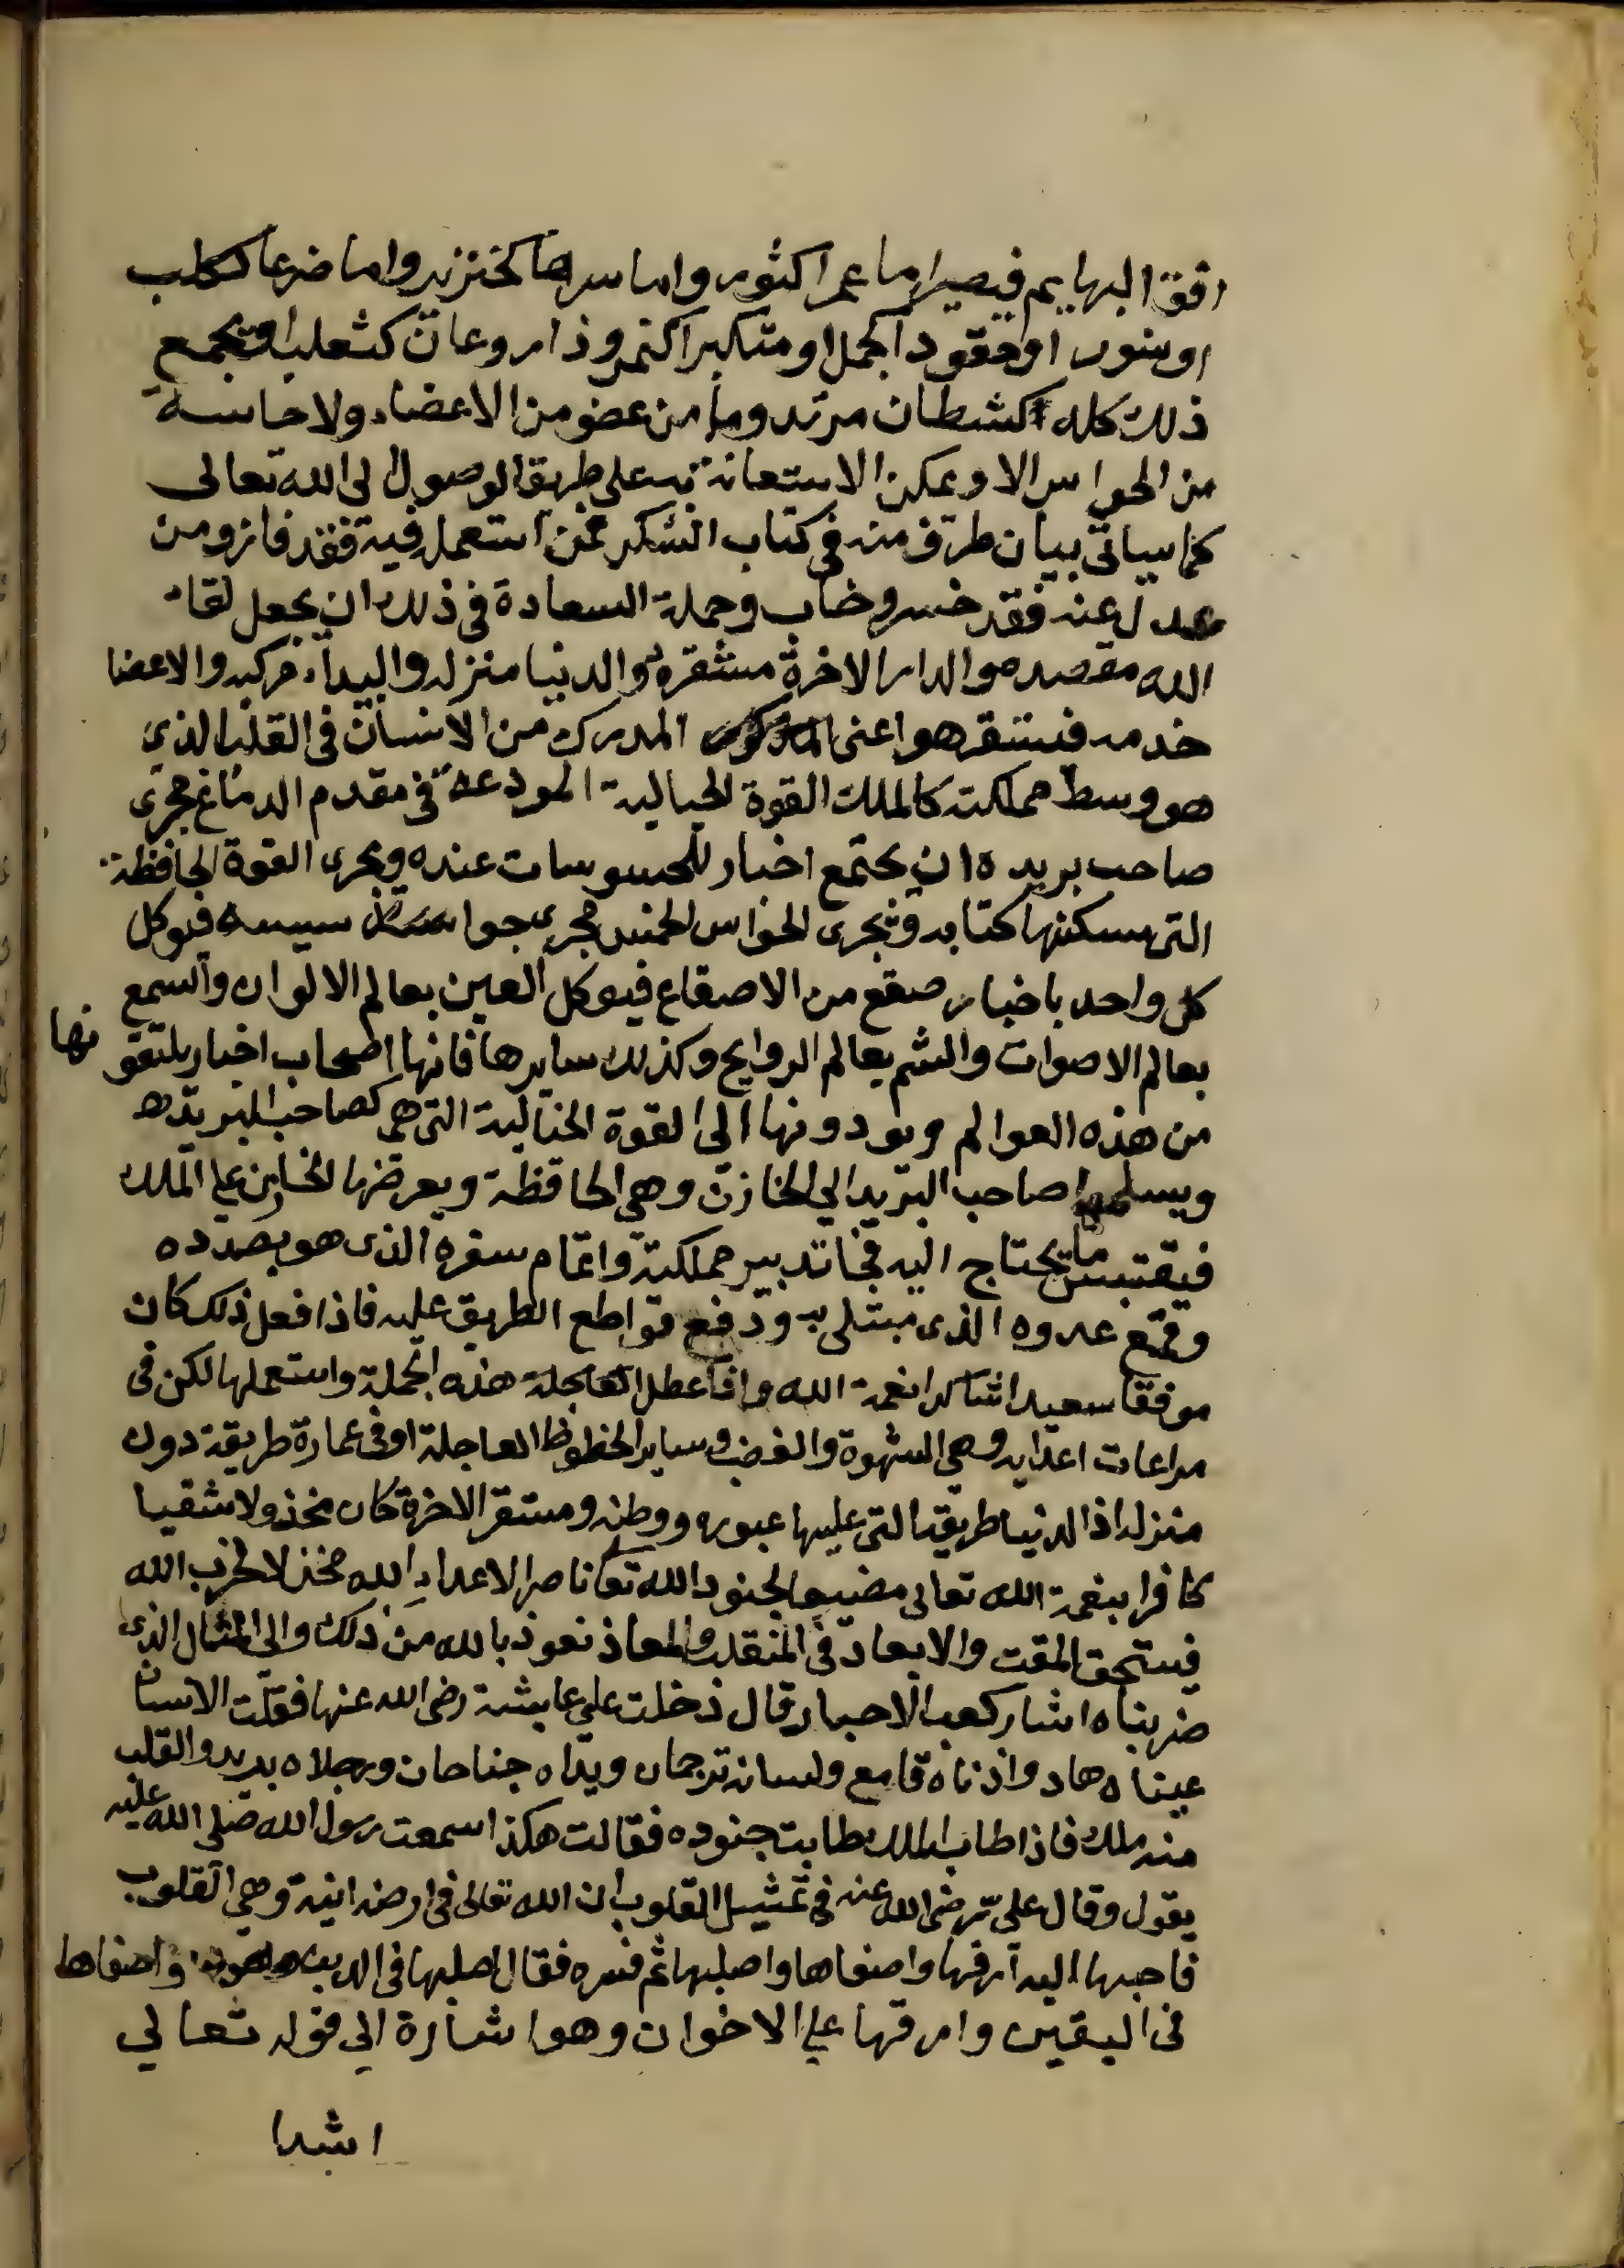 افق البهايم فيصير اما عمرا كثور واما سرها كخنزير واما ضرعا ككلب
او سنور او حقودا كجمل او متكبرا كنمر وذا روعان كثعلب او يجمع
ذلك كله كشطان مريد وما من عضو من الاعضاء ولا حاسة
من الحواس الا ويمكن الاستعانة به على طريق الوصول الى الله تعالى
كما سياتى بيان طرف منه فى كتاب الشكر فمن استعمله فيه فقد فاز ومن
عدل عنه فقد خسر وخاب وجملة السعادة فى ذلك ان يجعل لقاء
الله مقصده والدار الاخرة مستقره والدنيا منزله والبدن مركبه والاعضا
خدمه فيستقر هو اعنى المدرك من الانسان فى القلب الذى
هو وسط مملكته كالملك القوة الخيالية المودعة فى مقدم الدماغ مجرى
صاحب بريده ان يجتمع اخبار المحسوسات عنده ويجرى القوة الحافظة
التى مسكنها كتابه وتجرى الحواس الخمس مجرى جوا سيسه فيوكل
كل واحد باخبار صقع من الاصقاع فيوكل العين بعالم الالوان والسمع
بعالم الاصوات والشم بعالم الروايح وكذلك سايرها فانها اصحاب اخبار يلتقو نها
من هذه العوالم ويودونها الى القوة الخيالية التى هى كصاحب البريد
ويسلمها صاحب البريد الي الخازن وهى الحافظة ويعرضها الخازن على الملك
فيقتبس ما يحتاج اليه فى تدبير مملكته واتمام سفره الذى هو بصدده
وقمع عدوه الذى مبتلى به ودفع قواطع الطريق عليه فاذا فعل ذلك كان
موفقا سعيدا شاكرا نعمة الله واذا عطل هذه الجملة واستعملها لكن فى
مراعات اعدايه وهى الشهوة والغضب وساير الحظوظ العاجلة او فى عمارة طريقة دون
منزله اذ الدنيا طريقه التى عليها عبوره ووطنه ومستقر الاخرة كان مخذولا شقيا
كافرا بنعمة الله تعالى مضيعا لجنود الله تعا ناصرا لاعداء الله مخذلا لحزب الله
فيستحق المقت والابعاد فى المنقلب والمعاذ نعوذ بالله من ذلك والى المثال الذى
ضربناه اشار كعب الاحبار قال دخلت على عايشة رضى الله عنها فقلت الانسان
عيناه هاد واذناه قامع ولسانه ترجمان ويداه جناحان ورجلاه بريد والقلب
منه ملك فاذا طاب الملك طابت جنوده فقالت هكذا سمعت رسول الله صلى الله عليه
يقول وقال على رضى الله عنه فى تمثيل القلوب ان الله تعالى فى ارضه انية وهى القلوب
فاحبها اليه ارقها واصفاها واصلبها ثم فسره فقال اصلبها فى الدين واصفاها
فى اليقين وارقها على الاخوان وهو اشارة الى قوله تعالي
اشدا